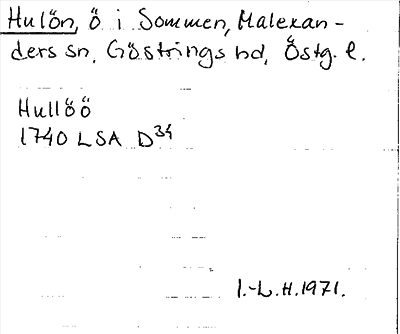 Hulön, ö i Sommen, Malexan-
ders sn, Göstrings hd, Östg. l.
Hullöö
1740 LSA D34
I.-L.H.1971.